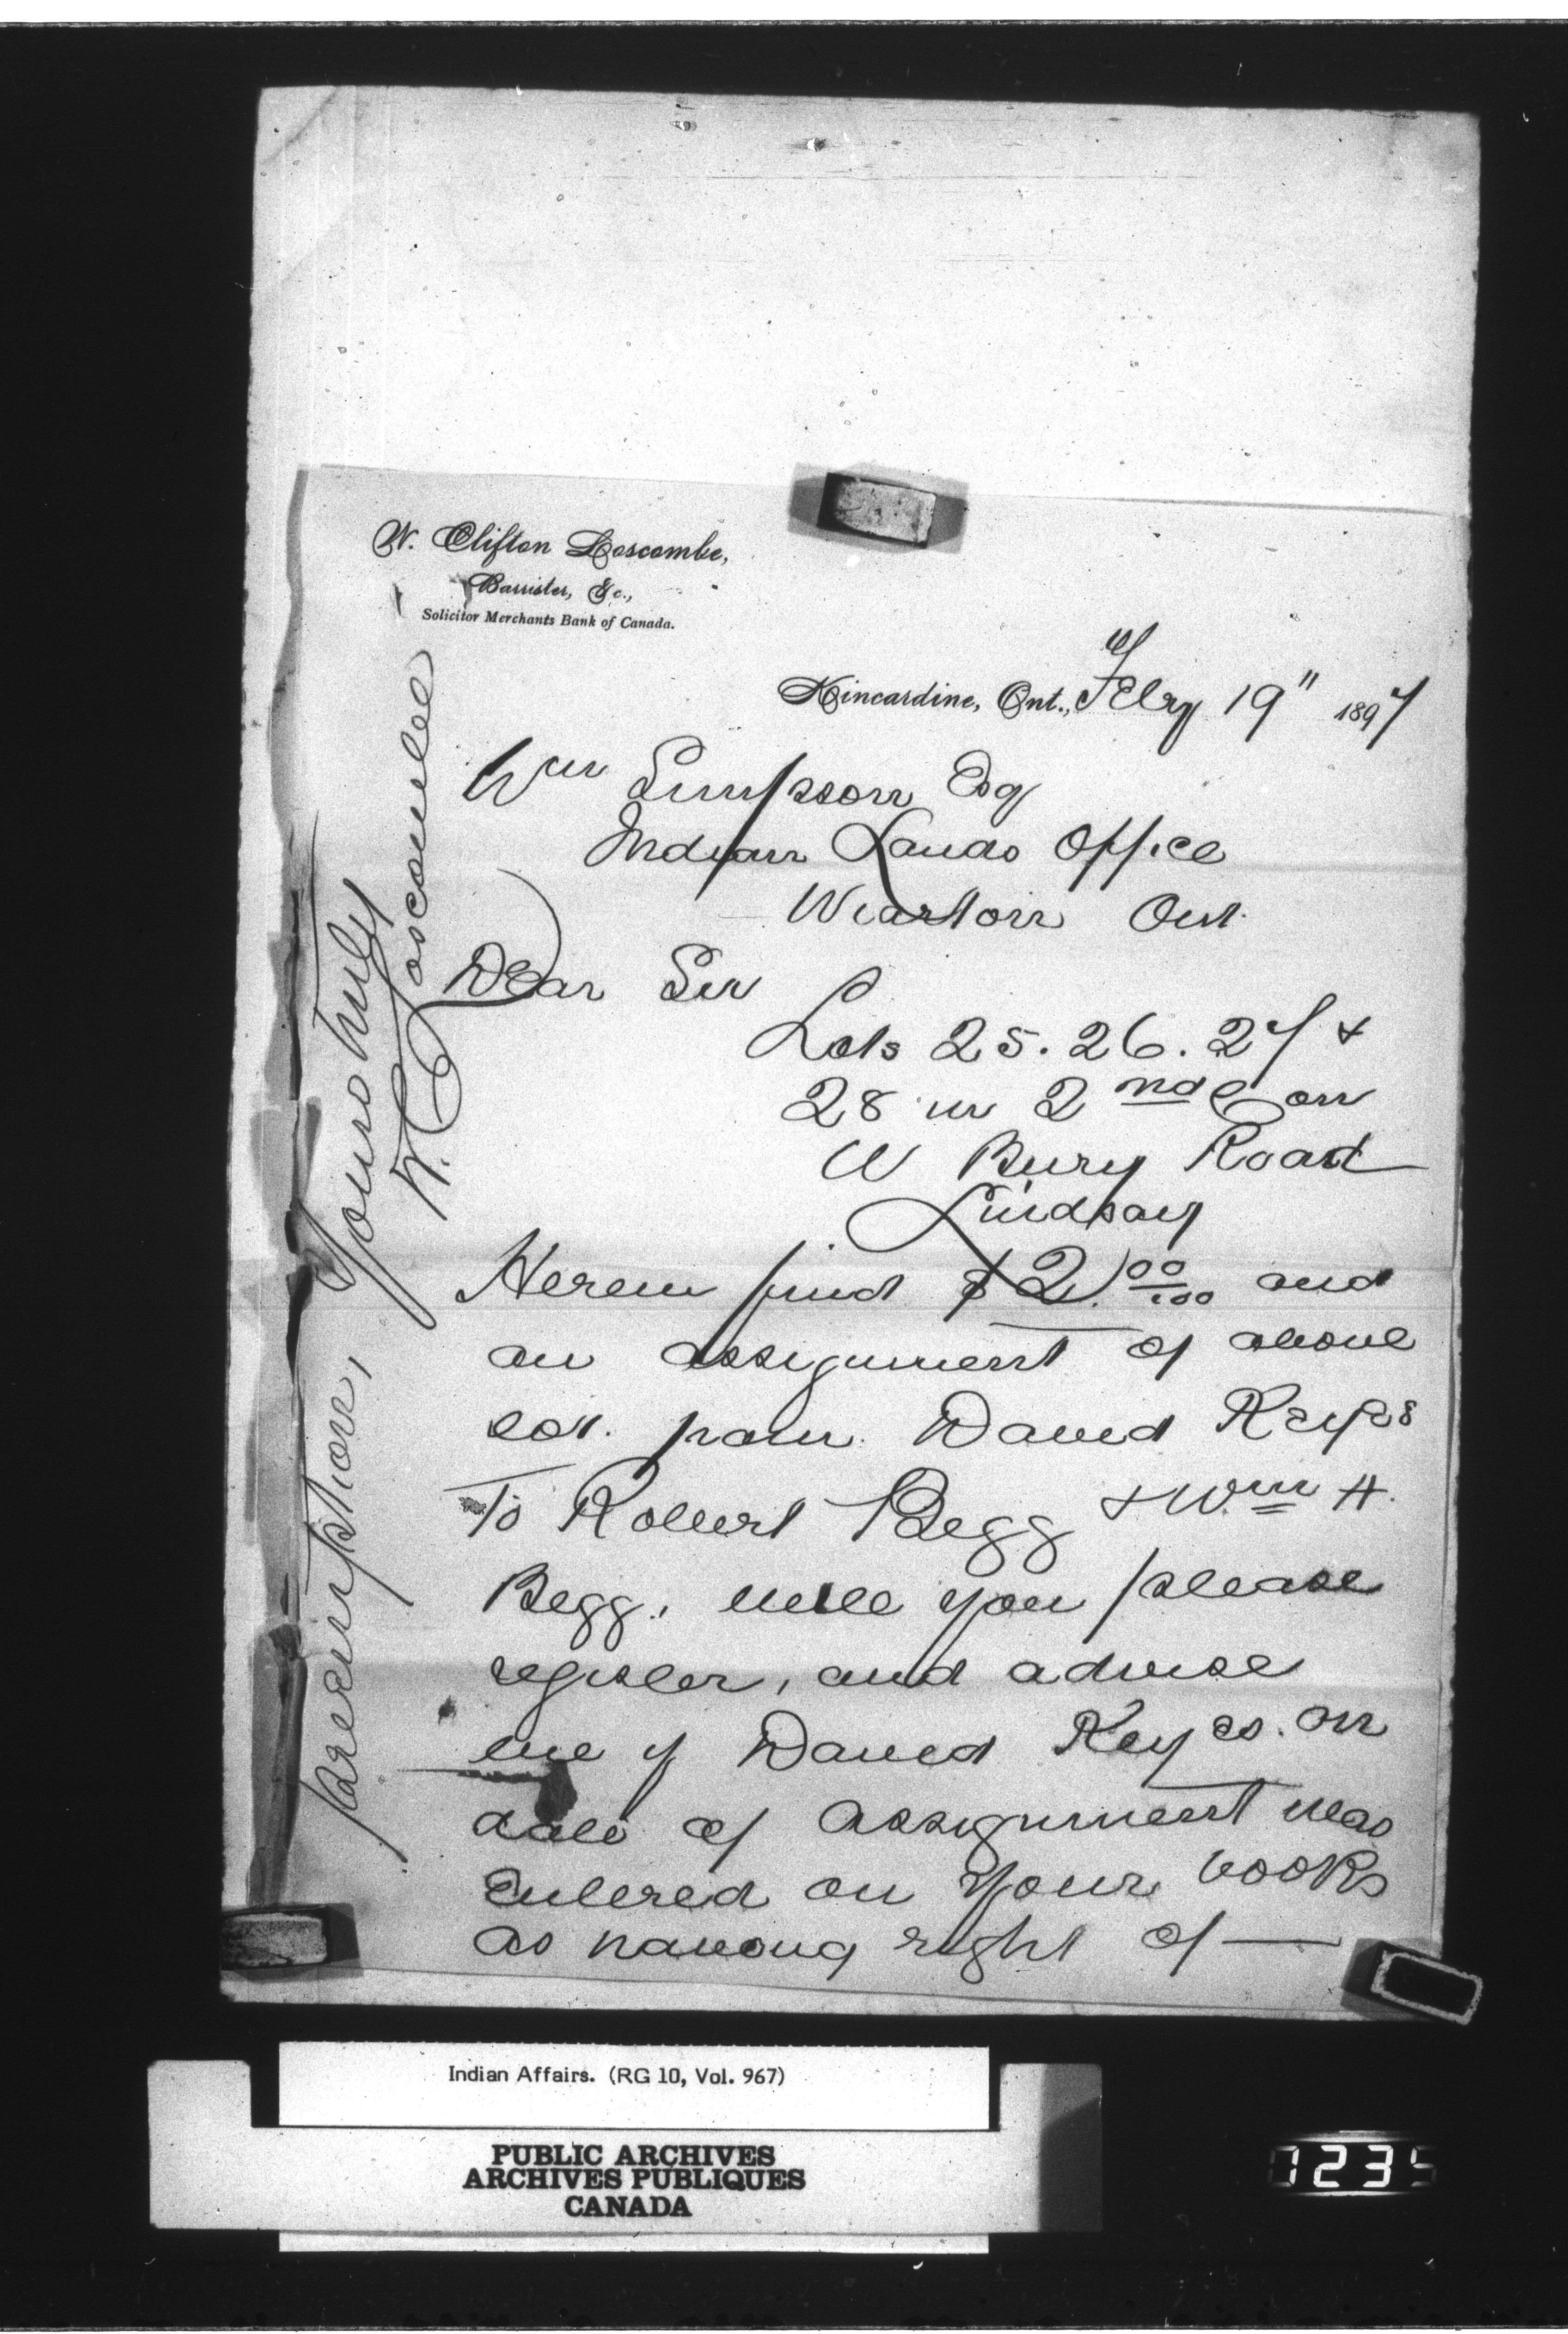 W. Clifton Loscombe,
Barrister, &c.,
Solicitor Merchants Bank of Canada.
Kincardine, Ont., Feby 19" 1897
Wm Simpson Esq
Indian Lands Office
Wiarton Ont.
Dear Sir
Lots 25. 26. 27 &
28 in 2nd Con
W Bury Road
Lindsay
Herein find $2.00/100 and
an assignment of above
lot. from David Keyes
To Robert Begg & Wm H.
Begg. will you please
register, and advise
me if David Keyes. on
date of assignment was
entered on your books
as having right of —
preemption,
Yours truly
W. C. Loscombe
Indian Affairs. (RG 10, Vol. 967)
PUBLIC ARCHIVES
ARCHIVES PUBLIQUES
CANADA
1235